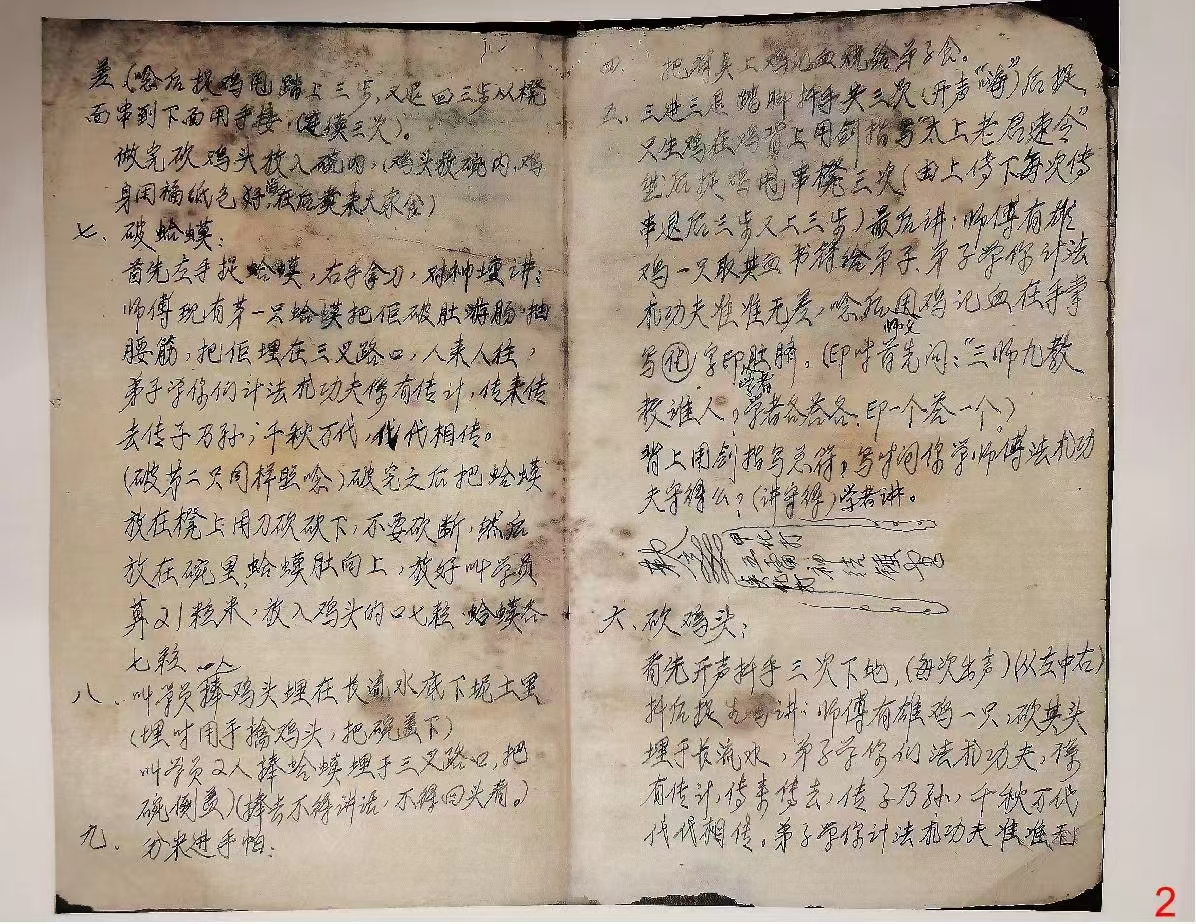 四、把鸡头上鸡记血统给弟子食。
五、三进三退踏脚抖手头三次（开声“嗨”）后捉
只生鸡在鸡背上用剑指写“太上老君速令”
然后捉鸡甩串櫈三次（由上传下每次传
串退后三步又上三步）最后讲：师傅有雄
鸡一只取其血书符给弟子，弟子学你计法
扎功夫准准无差，唸后用鸡记血在手掌
写㊋字印肚脐。（印时首先问：“三师九教
师父
教谁人？学者各答各，印一个答一个）
学者
背上用剑指写总符，写时问你学师傅法扎功
夫守得么？（讲守得）学者讲。
六、砍鸡头：
首先开声抖手三次下地，（每次出声）（从左中右）
抖后捉生鸡讲：师傅有雄鸡一只，砍其头
埋于长流水，弟子学你的法扎功夫，保
有传计，传来传去，传子乃孙，千秋万代
代代相传。弟子学你计法扎功夫准准无
差（唸后捉鸡甩踏上三步，又退回三步从櫈
面串到下面用手接，（连续三次）。
做完砍鸡头放入碗内，（鸡头放碗内，鸡
身用福纸包好，在后煲来大家食）
七、破蛤蟆：
首先左手捉蛤蟆，右手拿刀，对神坛讲：
师傅现有第一只蛤蟆把佢破肚游肠抽
腰筋，把佢埋在三叉路口，人来人往，
弟子学你们计法扎功夫保有传计，传来传
去传子乃孙，千秋万代，代代相传。
（破第二只同样照唸）破完之后把蛤蟆
放在櫈上用刀砍砍下，不要砍断，然后
放在碗里，蛤蟆肚向上，放好叫学员
算21粒米，放入鸡头的口七粒，蛤蟆各
七粒
八、叫学员捧鸡头埋在长流水底下坭土里
一人
（埋时用手擒鸡头，把碗盖下）
叫学员2人捧蛤蟆埋于三叉路口，把
碗倒盖）（捧去不得讲话，不得回头看。）
九、分米进手帕：
2